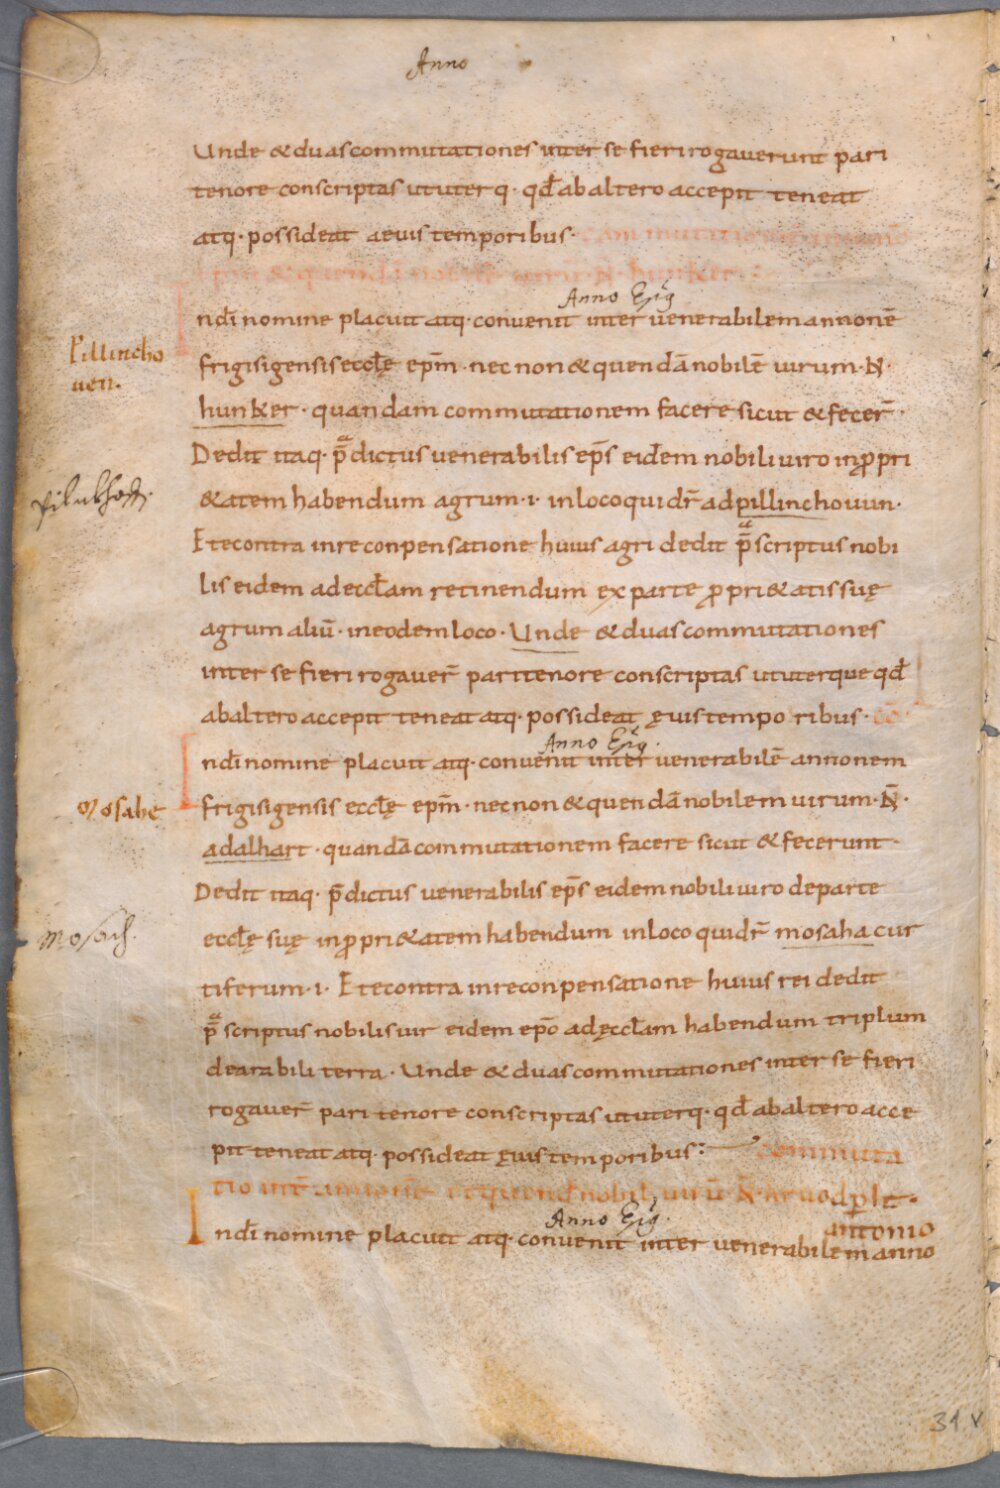 Anno
Unde & duas commutationes inter se fieri rogaverunt pari
tenore conscriptas ut uterq· qđ ab altero accepit teneat
atq· possideat aevis temporibus· com mutatio
& quendā nobilē virum· N̄· hunker·
Anno Eps̄
In dī nomine placuit atq· convenit inter venerabilem annonē
Pillincho
ven·
frigisigensis eccłę ep̄m· nec non & quendā nobilē virum· N̄·
hunker· quandam commutationem facere sicut & fecer̄·
Dedit itaq· p̄dictus venerabilis ep̄s eidem nobili viro in ꝓpri
&atem habendum agrum· i· in loco qui dr̄ ad pillinchovun·
Et econtra in reconpensatione huius agri dedit p̄scriptus nobi
lis eidem ad eccłam retinendum ex parte ꝓpri&atis suę
agrum aliū· in eodem loco· Unde & duas commutationes
inter se fieri rogaver̄ pari tenore conscriptas ut uterque qđ
ab altero accepit teneat atq· possideat ęvis temporibus· cō
In dī nomine placuit atq· convenit inter venerabilē annonem
Mosahe
frigisigensis eccłę ep̄m· nec non & quendā nobilem virum· N̄·
adalhart· quandā commutationem facere sicut & fecerunt·
Dedit itaq· p̄dictus venerabilis ep̄s eidem nobili viro de parte
Mosach.
eccłę suę in ꝓpri&atem habendum in loco qui dr̄ mosaha cur
tiferum· i· Et econtra in reconpensatione huius rei dedit
p̄scriptus nobilis vir eidem ep̄o ad ęccłam habendum triplum
de arabili terra· Unde & duas commutationes inter se fieri
rogaver̄ pari tenore conscriptas ut uterq· qđ ab altero acce
pit teneat atq· possideat ęvis temporibus: commuta
tio int̄ annonē et quendā nobilē virū· N̄·
In dī nomine placuit atq· convenit inter venerabilem anno
31 v